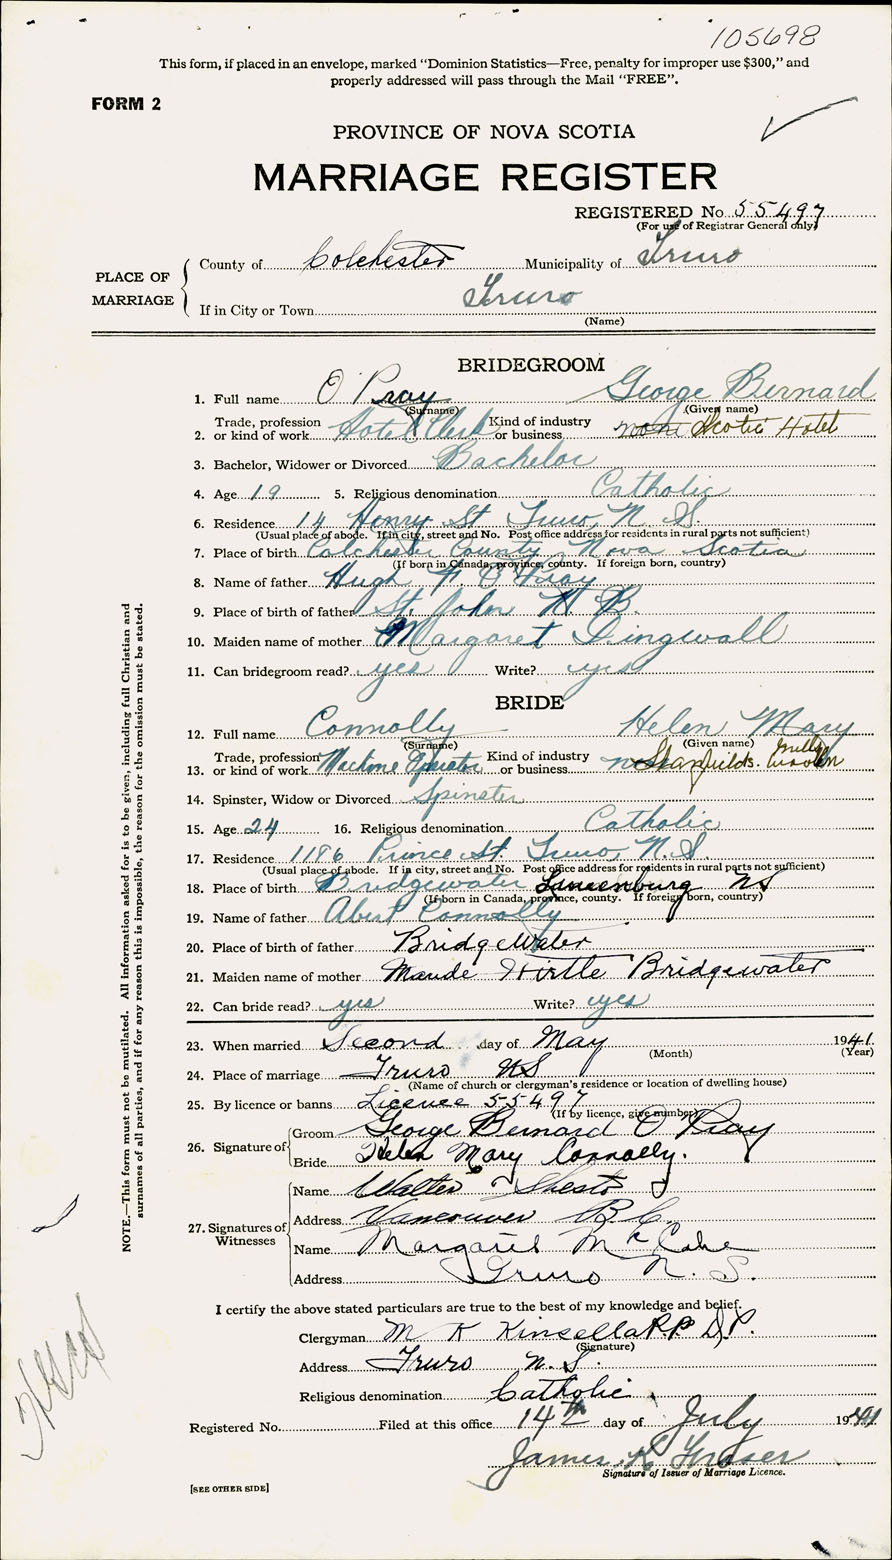 105698
This form, if placed in an envelope, marked “Dominion Statistics—Free, penalty for improper use $300,” and
properly addressed will pass through the Mail “FREE”.
FORM 2
PROVINCE OF NOVA SCOTIA
MARRIAGE REGISTER
REGISTERED No. 55497
(For use of Registrar General only)
PLACE OF MARRIAGE
County of Colchester Municipality of Truro
If in City or Town Truro
(Name)
BRIDEGROOM
1. Full name O'Pray George Bernard
(Surname) (Given name)
2. Trade, profession or kind of work Hotel Clerk Kind of industry or business Scotia Hotel
3. Bachelor, Widower or Divorced Bachelor
4. Age 19 5. Religious denomination Catholic
6. Residence 14 Henry St Truro, N. S.
(Usual place of abode. If in city, street and No. Post office address for residents in rural parts not sufficient)
7. Place of birth Colchester County Nova Scotia
(If born in Canada, province, county. If foreign born, country)
8. Name of father Hugh F. O'Pray
9. Place of birth of father St. John N. B.
10. Maiden name of mother Margaret Dingwall
11. Can bridegroom read? yes Write? yes
BRIDE
12. Full name Connolly Helen Mary
(Surname) (Given name)
13. Trade, profession or kind of work Machine Operator Kind of industry or business Stanfields. Woolen Mills
14. Spinster, Widow or Divorced Spinster
15. Age 24 16. Religious denomination Catholic
17. Residence 1186 Prince St. Truro, N. S.
(Usual place of abode. If in city, street and No. Post office address for residents in rural parts not sufficient)
18. Place of birth Bridgewater Lunenburg NS
(If born in Canada, province, county. If foreign born, country)
19. Name of father Abert Connolly
20. Place of birth of father Bridgewater
21. Maiden name of mother Maude Hirtle Bridgewater
22. Can bride read? yes Write? yes
23. When married Second day of May 1941
(Month) (Year)
24. Place of marriage Truro NS
(Name of church or clergyman's residence or location of dwelling house)
25. By licence or banns Licence 55497
(If by licence, give number)
26. Signature of
Groom George Bernard O'Pray
Bride Helen Mary Connolly.
27. Signatures of Witnesses
Name Walter
Address Vancouver B.C.
Name Margaret McCabe
Address Truro N. S.
I certify the above stated particulars are true to the best of my knowledge and belief.
Clergyman M K Kinsella P.P. D.P.
(Signature)
Address Truro N. S.
Religious denomination Catholic
Registered No. Filed at this office 14th day of July 1941
James K Fraser
Signature of Issuer of Marriage Licence.
[SEE OTHER SIDE]
NOTE.—This form must not be mutilated. All Information asked for is to be given, including full Christian and
surnames of all parties, and if for any reason this is impossible, the reason for the omission must be stated.